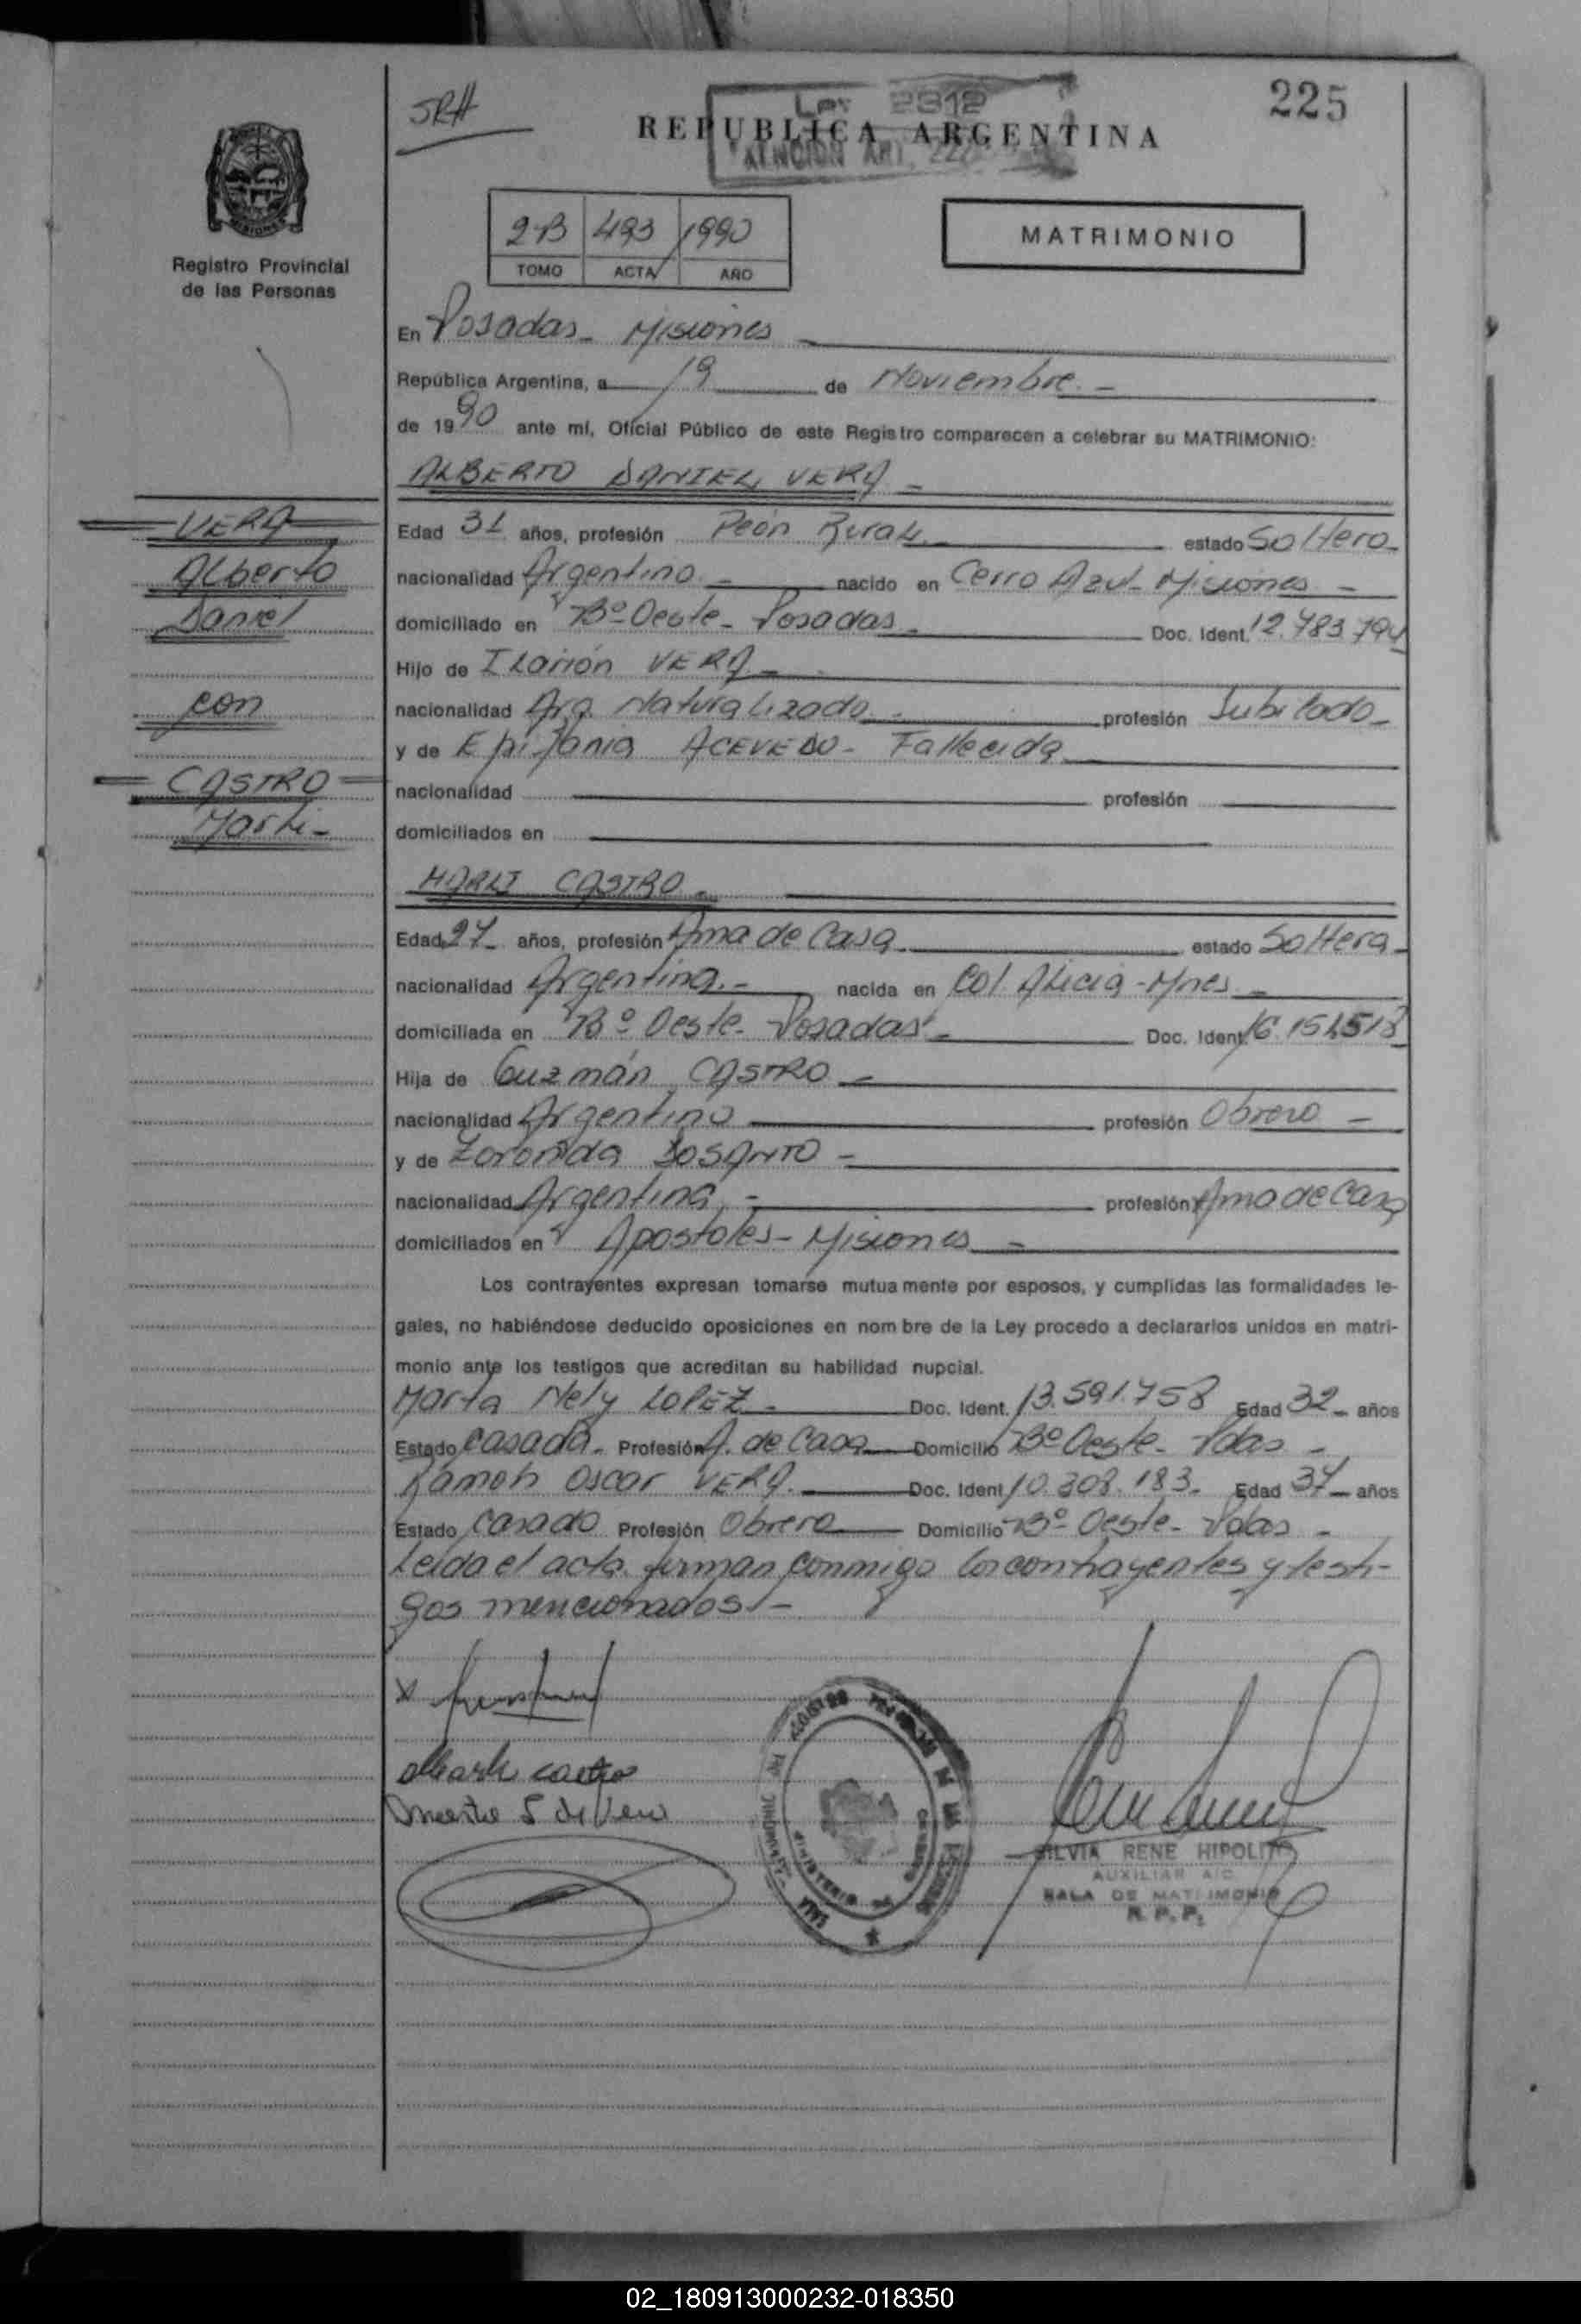 225
SRH
Ley 2312
REPUBLICA ARGENTINA
ATENCION ART.
MISIONES
Registro Provincial
de las Personas
2-B 493 1990
TOMO ACTA AÑO
MATRIMONIO
En Posadas - Misiones -
República Argentina, a 19 de Noviembre.-
de 1990 ante mí, Oficial Público de este Registro comparecen a celebrar su MATRIMONIO:
ALBERTO DANIEL VERA -
VERA
Alberto
Daniel
con
CASTRO
Marli-
Edad 31 años, profesión Peón Rural. estado Soltero-
nacionalidad Argentino.- nacido en Cerro Azul- Misiones -
domiciliado en Bº Oeste- Posadas- Doc. Ident. 12.783.794
Hijo de Ilarión VERA -
nacionalidad Arg. Naturalizado.- profesión Jubilado-
y de Epifania ACEVEDO- Fallecida
nacionalidad profesión
domiciliados en
MARLI CASTRO -
Edad 27- años, profesión Ama de Casa estado Soltera-
nacionalidad Argentina.- nacida en Col. Alicia -Mnes -
domiciliada en Bº Oeste- Posadas - Doc. Ident. 16.151.518
Hija de Guzmán CASTRO -
nacionalidad Argentino profesión Obrero -
y de DOSANTO -
nacionalidad Argentina - profesión Ama de Casa
domiciliados en Apostoles- Misiones -
Los contrayentes expresan tomarse mutuamente por esposos, y cumplidas las formalidades le-
gales, no habiéndose deducido oposiciones en nombre de la Ley procedo a declararlos unidos en matri-
monio ante los testigos que acreditan su habilidad nupcial.
Marta Nely LOPEZ - Doc. Ident. 13.591.758 Edad 32- años
Estado Casada- Profesión A. de Casa Domicilio Bº Oeste- Pdas -
Ramón Oscar VERA. Doc. Ident. 10.308.183. Edad 37- años
Estado Casado Profesión Obrero Domicilio Bº Oeste- Pdas -
Leida el acta firman conmigo los contrayentes y testi-
gos mencionados.-
Marli Castro
de Vera
SILVIA RENE HIPOLITO
AUXILIAR A/C
SALA DE MATRIMONIO
R. P. P.
02_180913000232-018350